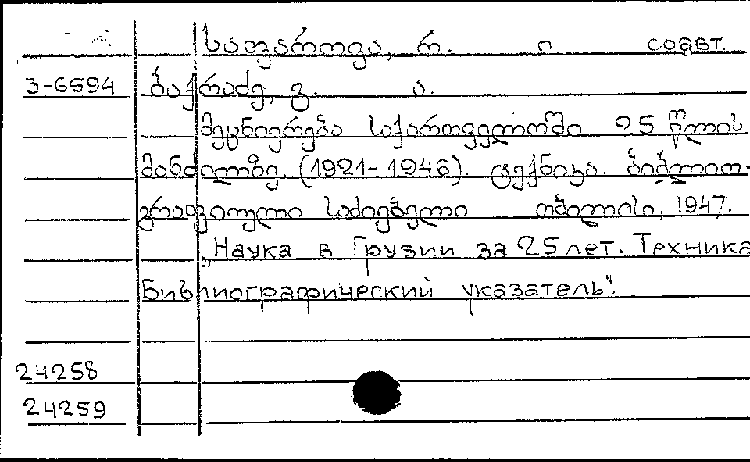 საფაროვა, რ. ი соавт.
3-6594 ბაქრაძე, გ. ა.
მეცნიერება საქართველოში 25 წლის
მანძილზე. (1921-1946). ტექნიკა. ბიბლიო-
გრაფიული საძიებელი თბილისი, 1947.
„Наука в Грузии за 25 лет. Техника
Библиографический указатель".
24258
24259